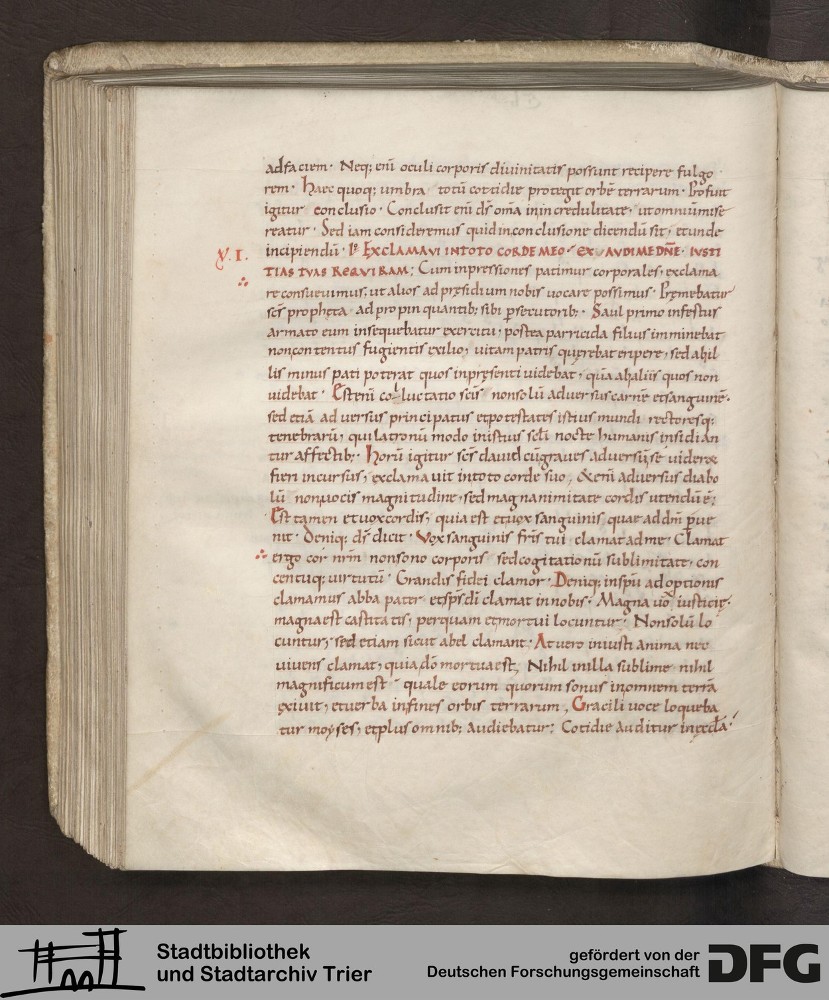 adfaciem· Neq; eni̅ oculi corporis diuinitatis possunt recipere fulgo
rem· Haec quoq; umbra totu̅ cottidie protegit orbe̅ terrarum·
igitur conclusio· Conclusit eni̅ ds̅ om̅a inincredulitate, utomniu̅mise
reatur· Sed iam consideremus quidinconclusione dicendu̅ sit, etunde
incipiendu̅· EXCLAMAVI INTOTO CORDEMEO EXAUDIMEDNE̅· IUSTI
V.I.
TIAS TUAS REQUIRAM; Cum inpressiones patimur corporales, exclama
re consueuimus, ut alios ad presidium nobis uocare possimus· Premebatur
scs̅ propheta ad propinquantib; sibi persecutorib;· Saul primo infestus
armato eum insequebatur exercitu, postea parricida filius imminebat
noncontentus fugientis exilio, uitam patris querebat eripere, sed ab il
lis minus pati poterat quos inpresenti uidebat, qua̅ abaliis quos non
uidebat· Esteni̅ colluctatio scis̅ nonsolu̅ aduersus carne̅ etsanguine̅·
sed etia̅ aduersus principatus etpotestates istius mundi rectoresq;
tenebraru̅, qui latronu̅ modo inistius scl̅i nocte humanis insidian
tur affectib;· Horu̅ igitur scs̅ dauid cu̅graues aduersu̅ se uideret
fieri incursus, exclamauit intoto corde suo, &eni̅ aduersus diabo
lu̅ nonuocis magnitudine, sed magnanimitate cordis utendu̅ e̅;
Est tamen etuox cordis, quia est etuox sanguinis, quae addm̅ perue
nit· Deniq; ds̅ dicit· Vox sanguinis fris̅ tui clamat ad me· Clamat
ergo cor nrm̅ nonsono corporis sedcogitationu̅ sublimitate, con
centuq; uirtutu̅· Grandis fidei clamor· Deniq; inspu̅ adoptionis
clamamus abba pater, etsps̅ di̅ clamat innobis· Magna uo̅ iusticie·
magnaest castitatis, perquam etmortui locuntur· Nonsolu̅ lo
cuntur, sed etiam sicut abel clamant· At uero iniusti anima nec
uiuens clamat, quia do̅ mortua est, Nihil inilla sublime nihil
magnificum est quale eorum quorum sonus inomnem terra̅
exiuit, etuerba infines orbis terrarum, Gracili uoce loqueba
tur moyses, etplus omnib; audiebatur; Cotidie auditur ineccl̅a·
Stadtbibliothek
und Stadtarchiv Trier
gefördert von der
Deutschen Forschungsgemeinschaft
DFG